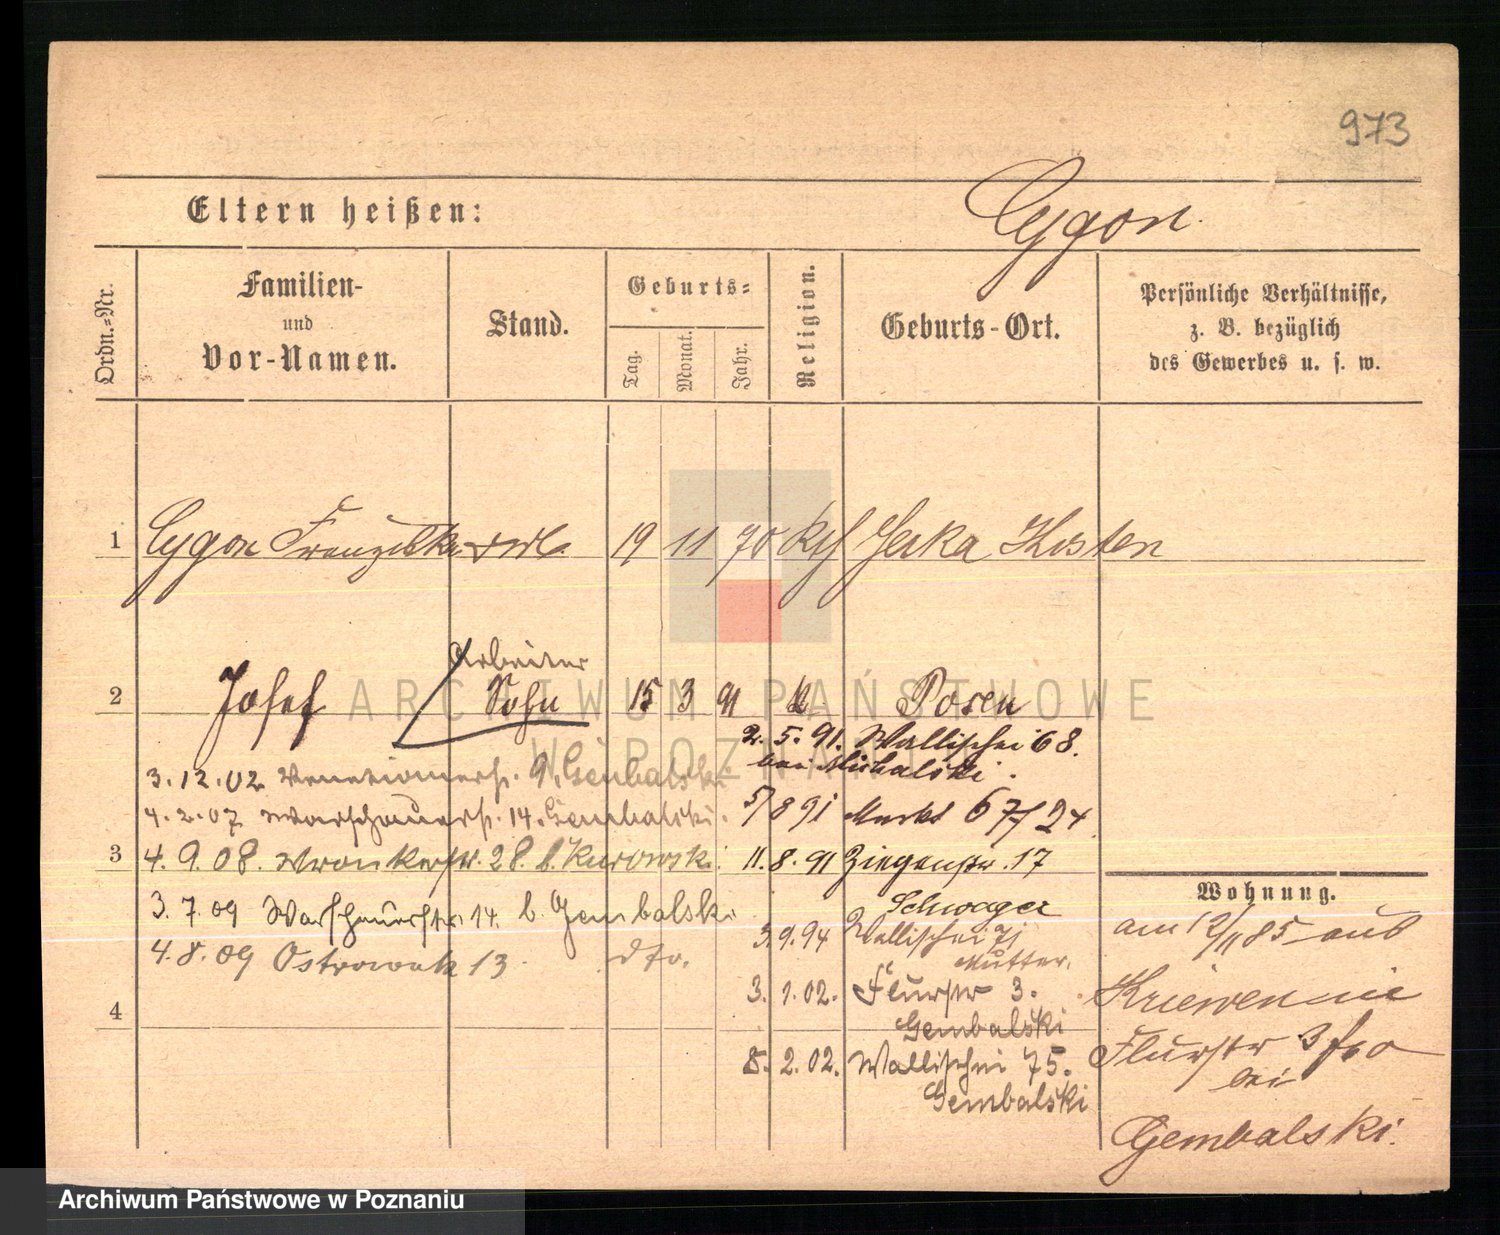 973
Eltern heißen:
Cygon
Ordn.=Nr.
Familien-
und
Vor-Namen.
Stand.
Geburts=
Tag.
Monat.
Jahr.
Religion.
Geburts-Ort.
Persönliche Verhältnisse,
z. B. bezüglich
des Gewerbes u. s. w.
1 Cygon Franziska 19 11 70 Kth Jerka Kosten
Arbeiter
2 Josef Sohn 15 3 91 k Posen
ARCHIWUM PAŃSTWOWE
W POZNANIU
2. 5. 91. Wallischei 68.
bei Michalski.
3. 12. 02 Venetianerstr. 9. Gembalski
4. 2. 07 Warschauerstr. 14. Gembalski.
5/8 91 Markt 67/ 24
3 4. 9. 08. Wronkerstr. 28. b. Kurowski
11. 8. 91 Ziegenstr. 17
Wohnung.
3. 7. 09 Warschauerstr. 14. b. Gembalski
Schwager
am 12/11 85 aus
3. 9. 94 Wallischei 71
Mutter.
4. 8. 09 Ostrowek 13 dto.
3. 1. 02. Flurstr 3.
Gembalski
Kriewen
4
8. 2. 02. Wallischei 75.
Gembalski
Flurstr 3
bei
Gembalski.
Archiwum Państwowe w Poznaniu